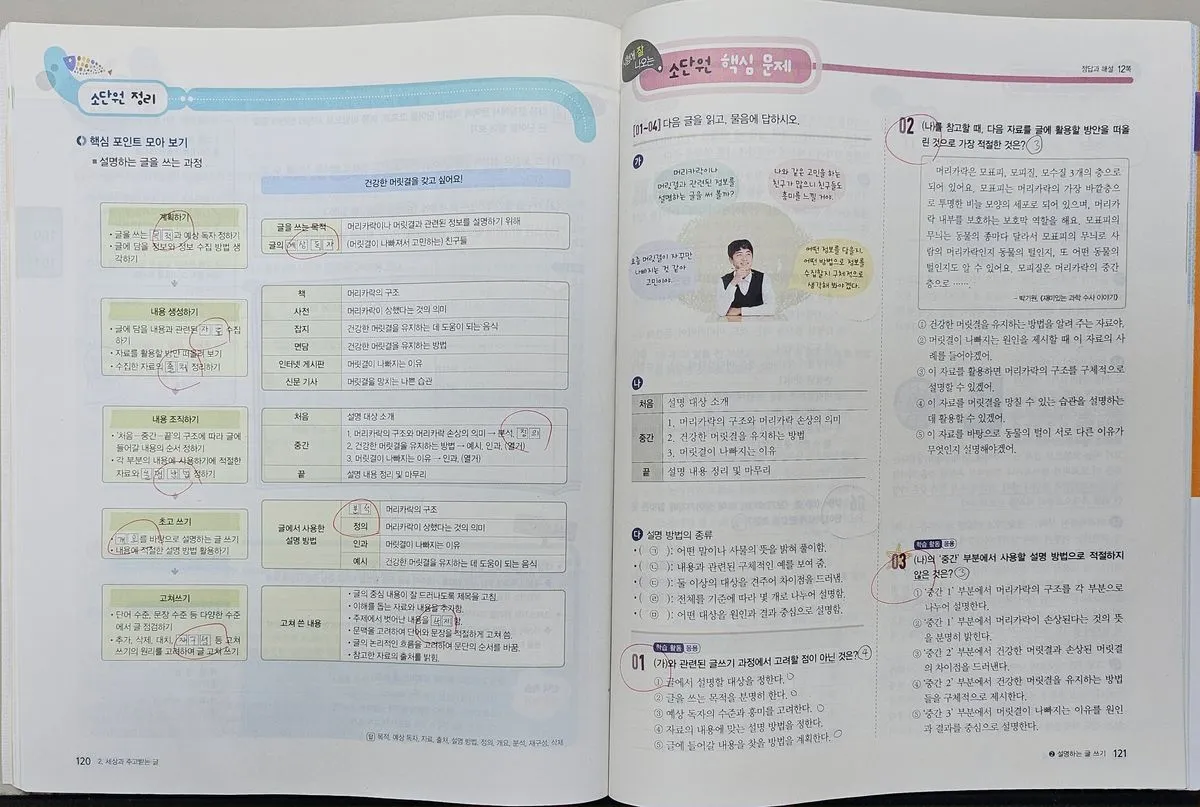 소단원 정리
핵심 포인트 모아 보기
■ 설명하는 글을 쓰는 과정
건강한 머릿결을 갖고 싶어요!
계획하기
• 글을 쓰는 목적과 예상 독자 정하기
• 글에 담을 정보와 정보 수집 방법 생
각하기
글을 쓰는 목적 머리카락이나 머릿결과 관련된 정보를 설명하기 위해
글의 예상 독자 (머릿결이 나빠져서 고민하는) 친구들
내용 생성하기
• 글에 담을 내용과 관련된 자료 수집
하기
• 자료를 활용할 방안 떠올려 보기
• 수집한 자료의 출처 정리하기
책 머리카락의 구조
사전 머리카락이 상했다는 것의 의미
잡지 건강한 머릿결을 유지하는 데 도움이 되는 음식
면담 건강한 머릿결을 유지하는 방법
인터넷 게시판 머릿결이 나빠지는 이유
신문 기사 머릿결을 망치는 나쁜 습관
내용 조직하기
• '처음-중간-끝'의 구조에 따라 글에
들어갈 내용의 순서 정하기
• 각 부분의 내용에 사용하기에 적절한
자료와 설명 방법 정하기
처음 설명 대상 소개
중간 1. 머리카락의 구조와 머리카락 손상의 의미 → 분석, 정의
2. 건강한 머릿결을 유지하는 방법 → 예시, 인과, (열거)
3. 머릿결이 나빠지는 이유 → 인과, (열거)
끝 설명 내용 정리 및 마무리
초고 쓰기
• 개요를 바탕으로 설명하는 글 쓰기
• 내용에 적절한 설명 방법 활용하기
글에서 사용한
설명 방법
분석 머리카락의 구조
정의 머리카락이 상했다는 것의 의미
인과 머릿결이 나빠지는 이유
예시 건강한 머릿결을 유지하는 데 도움이 되는 음식
고쳐쓰기
• 단어 수준, 문장 수준 등 다양한 수준
에서 글 점검하기
• 추가, 삭제, 대치, 재구성 등 고쳐
쓰기의 원리를 고려하며 글 고쳐 쓰기
고쳐 쓴 내용
• 글의 중심 내용이 잘 드러나도록 제목을 고침.
• 이해를 돕는 자료와 내용을 추가함.
• 주제에서 벗어난 내용을 삭제함.
• 문맥을 고려하여 단어와 문장을 적절하게 고쳐 씀.
• 글의 논리적인 흐름을 고려하여 문단의 순서를 바꿈.
• 참고한 자료의 출처를 밝힘.
답 목적, 예상 독자, 자료, 출처, 설명 방법, 정의, 개요, 분석, 재구성, 삭제
120 2. 세상과 주고받는 글
시험에 잘
나오는
소단원 핵심 문제
정답과 해설 12쪽
[01-04] 다음 글을 읽고, 물음에 답하시오.
가
머리카락이나
머릿결과 관련된 정보를
설명하는 글을 써 볼까?
나와 같은 고민을 하는
친구가 많으니 친구들도
흥미를 느낄 거야.
요즘 머릿결이 자꾸만
나빠지는 것 같아
고민이야.
어떤 정보를 담을지,
어떤 방법으로 정보를
수집할지 구체적으로
생각해 봐야겠다.
나
처음 설명 대상 소개
중간 1. 머리카락의 구조와 머리카락 손상의 의미
2. 건강한 머릿결을 유지하는 방법
3. 머릿결이 나빠지는 이유
끝 설명 내용 정리 및 마무리
다 설명 방법의 종류
• ( ㉠ ): 어떤 말이나 사물의 뜻을 밝혀 풀이함.
• ( ㉡ ): 내용과 관련된 구체적인 예를 보여 줌.
• ( ㉢ ): 둘 이상의 대상을 견주어 차이점을 드러냄.
• ( ㉣ ): 전체를 기준에 따라 몇 개로 나누어 설명함.
• ( ㉤ ): 어떤 대상을 원인과 결과 중심으로 설명함.
학습 활동 응용
01 (가)와 관련된 글쓰기 과정에서 고려할 점이 아닌 것은? ④
① 글에서 설명할 대상을 정한다. ○
② 글을 쓰는 목적을 분명히 한다. ○
③ 예상 독자의 수준과 흥미를 고려한다. ○
④ 자료의 내용에 맞는 설명 방법을 정한다.
⑤ 글에 들어갈 내용을 찾을 방법을 계획한다. ○
02 (나)를 참고할 때, 다음 자료를 글에 활용할 방안을 떠올
린 것으로 가장 적절한 것은? ③
머리카락은 모표피, 모피질, 모수질 3개의 층으로
되어 있어요. 모표피는 머리카락의 가장 바깥층으
로 투명한 비늘 모양의 세포로 되어 있으며, 머리카
락 내부를 보호하는 보호막 역할을 해요. 모표피의
무늬는 동물의 종마다 달라서 모표피의 무늬로 사
람의 머리카락인지 동물의 털인지, 또 어떤 동물의
털인지도 알 수 있어요. 모피질은 머리카락의 중간
층으로 ……
- 박기원, 《재미있는 과학 수사 이야기》
① 건강한 머릿결을 유지하는 방법을 알려 주는 자료야.
② 머릿결이 나빠지는 원인을 제시할 때 이 자료의 사
례를 들어야겠어.
③ 이 자료를 활용하면 머리카락의 구조를 구체적으로
설명할 수 있겠어.
④ 이 자료를 머릿결을 망칠 수 있는 습관을 설명하는
데 활용할 수 있겠어.
⑤ 이 자료를 바탕으로 동물의 털이 서로 다른 이유가
무엇인지 설명해야겠어.
학습 활동 응용
03 (나)의 '중간' 부분에서 사용할 설명 방법으로 적절하지
않은 것은? ③
① '중간 1' 부분에서 머리카락의 구조를 각 부분으로
나누어 설명한다.
② '중간 1' 부분에서 머리카락이 손상된다는 것의 뜻
을 분명히 밝힌다.
③ '중간 2' 부분에서 건강한 머릿결과 손상된 머릿결
의 차이점을 드러낸다.
④ '중간 2' 부분에서 건강한 머릿결을 유지하는 방법
들을 구체적으로 제시한다.
⑤ '중간 3' 부분에서 머릿결이 나빠지는 이유를 원인
과 결과를 중심으로 설명한다.
❷ 설명하는 글 쓰기 121